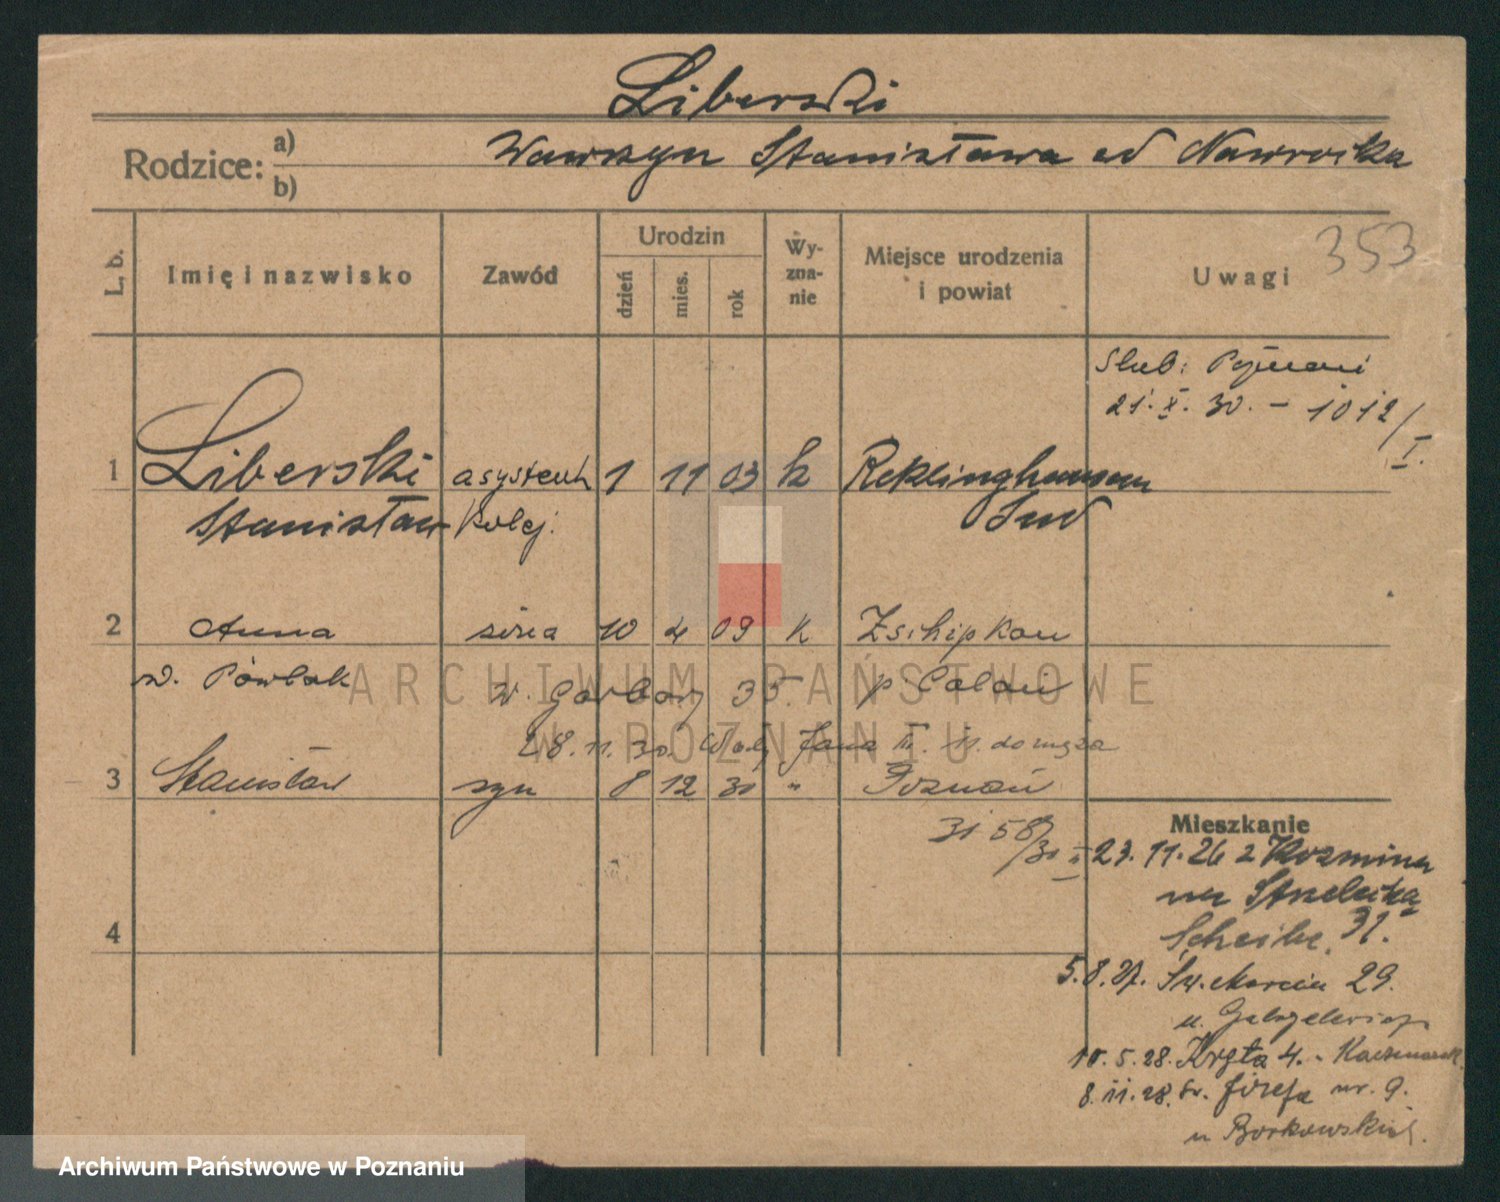 Liberski
Rodzice: a) Wawrzyn Stanisława od Nawrocka
b)
353
L. b. Imię i nazwisko Zawód Urodzin dzień mies. rok Wyznanie Miejsce urodzenia i powiat Uwagi
Slub: Poznań
21. X. 30. - 1012/I.
1 Liberski asystent 1 11 03 k Reklinghausen
Stanisław Kolej.
2 Anna żona 10 4 09 K Zschipkau
z d. Pawlak w. Garbary 35. p. Calau
28.11.30. Jana III. 11. do męża
3 Stanisław syn 8 12 30 " Poznań
3158/30 II
Mieszkanie
23. 11. 26 z Kozmina
na Strzelecka
Scheibe. 31.
4
5.8.27. Św. Marcin 29.
u.
10. 5. 28. Kręta 4. - Kaczmarek
8. 11. 28. św. Józefa nr. 9.
u Borkowskich.
ARCHIWUM PAŃSTWOWE
W POZNANIU
Archiwum Państwowe w Poznaniu